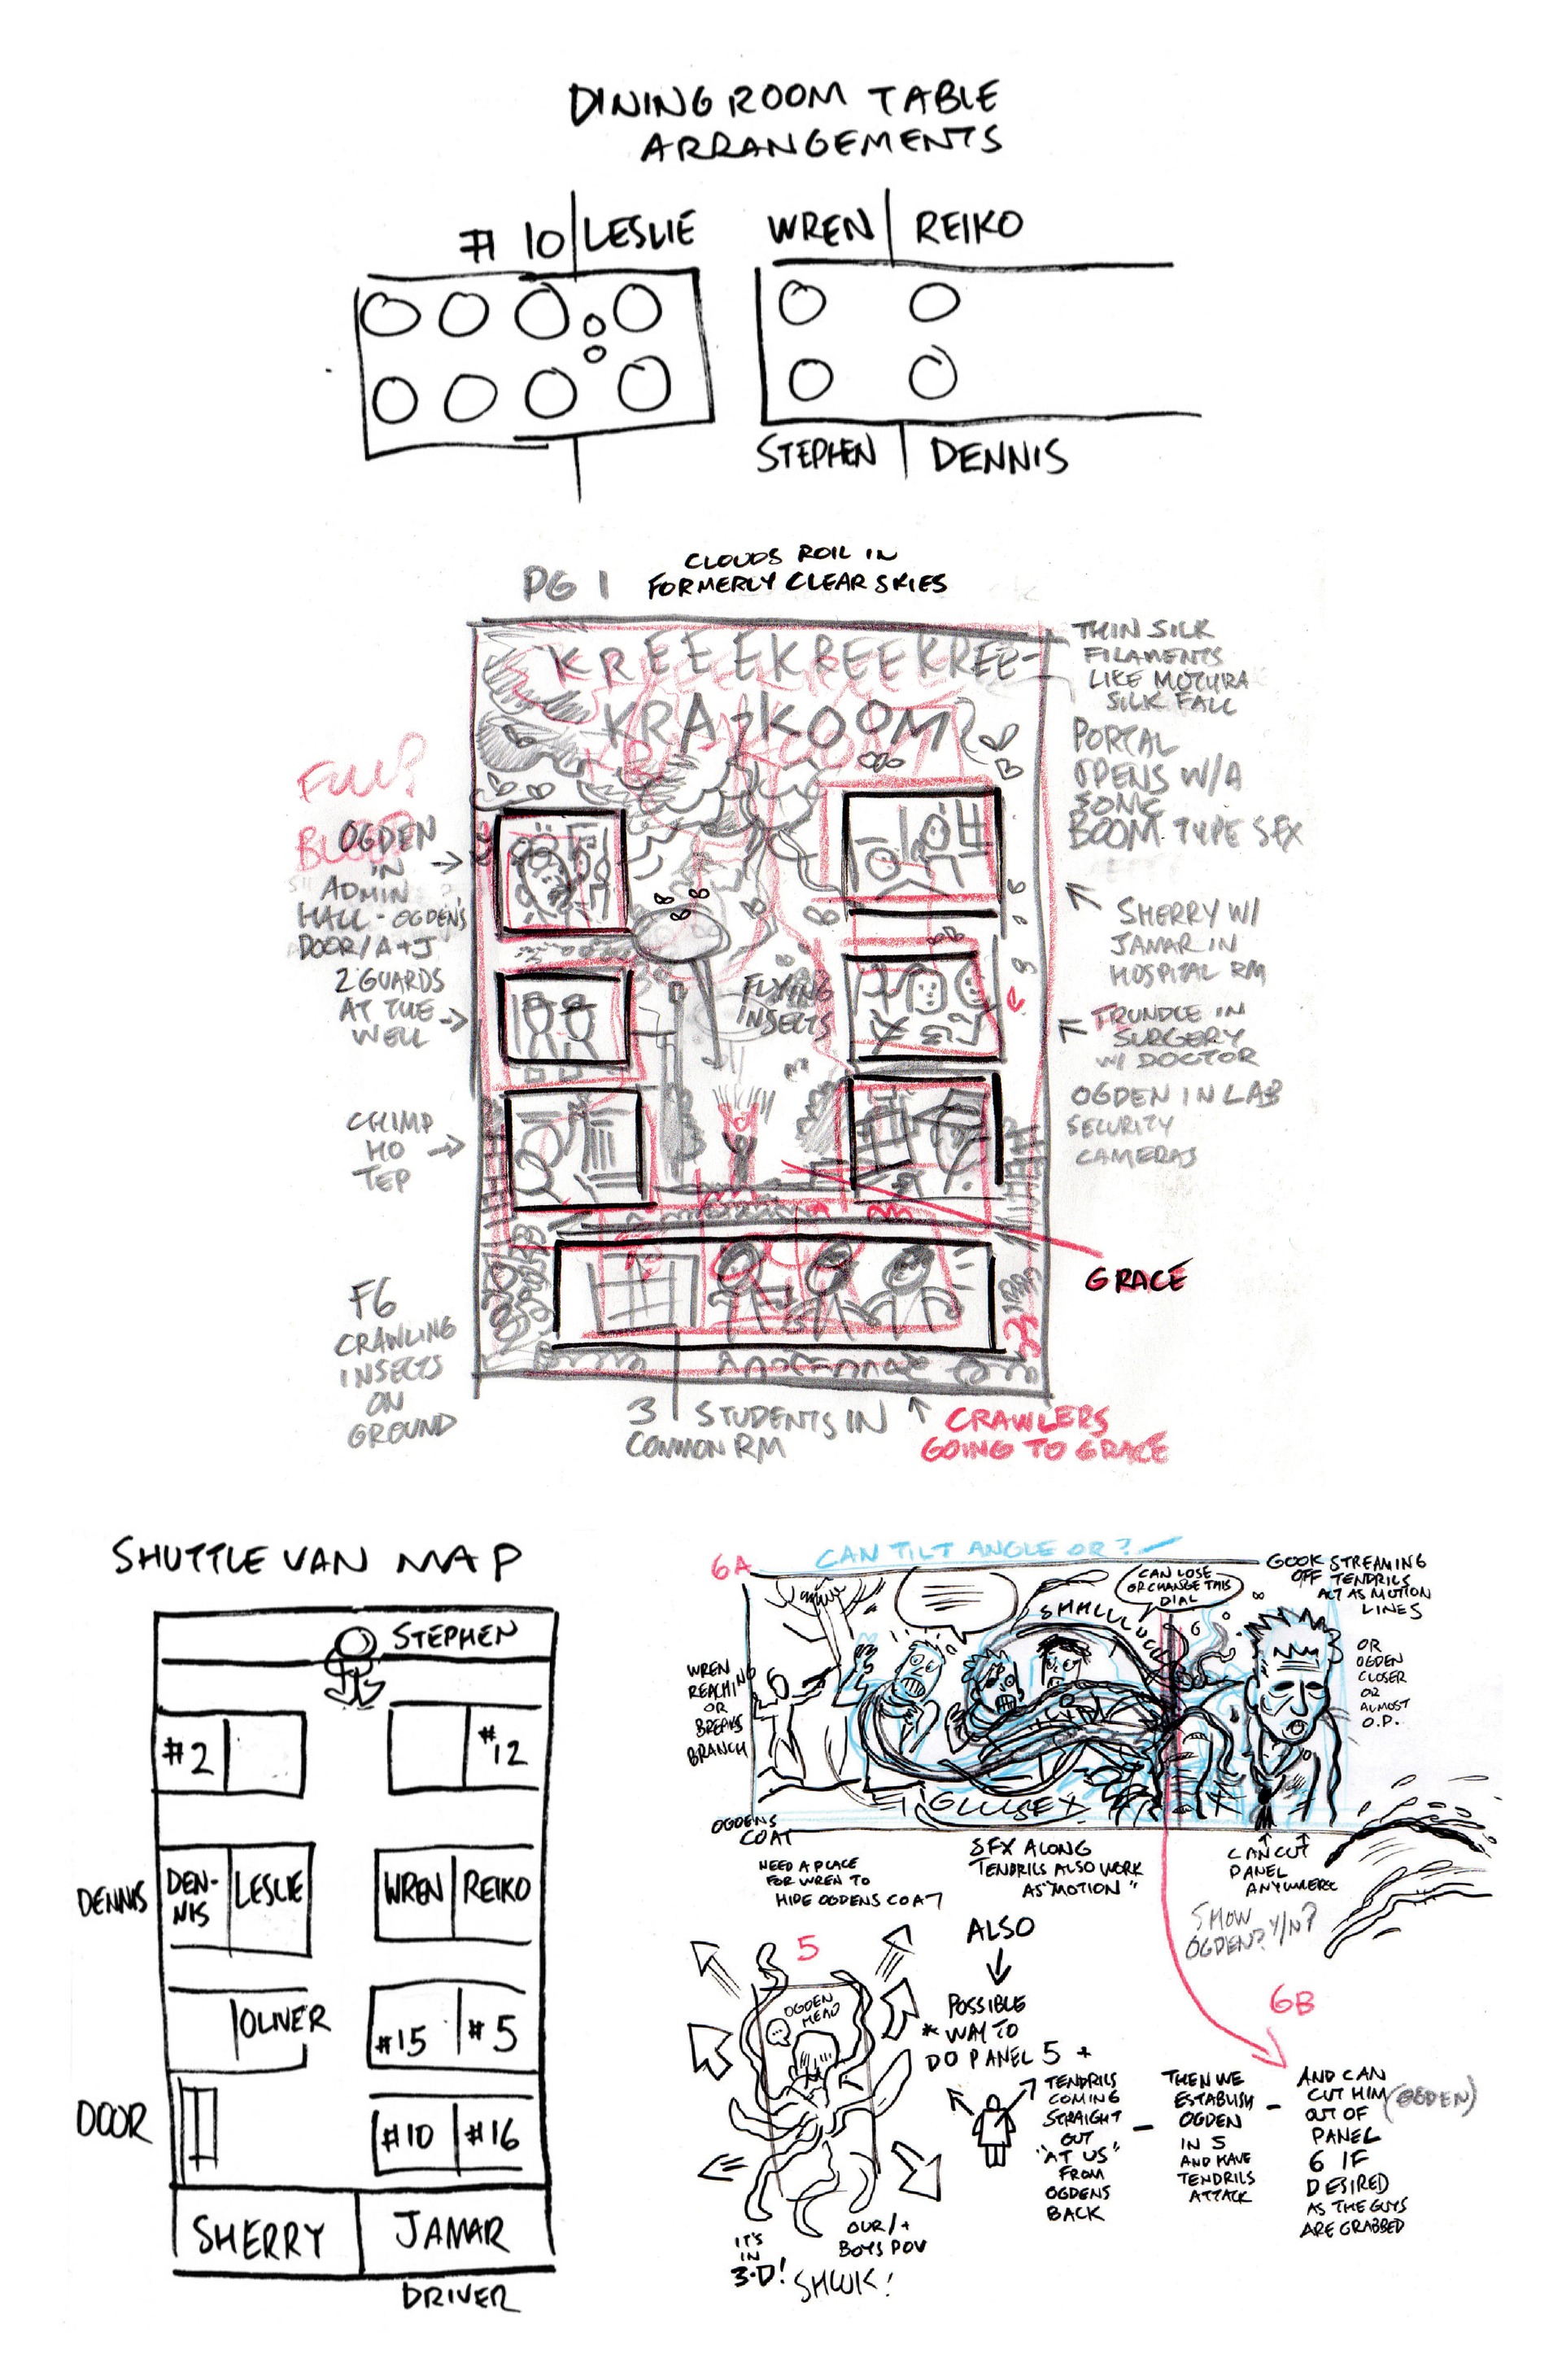 DINING ROOM TABLE
ARRANGEMENTS
# 10 LESLIE WREN REIKO
STEPHEN DENNIS
CLOUDS ROIL IN
FORMERLY CLEAR SKIES
PG 1
KREEEKREEKREE-
KRA-KOOM
THIN SILK
FILAMENTS
LIKE MOTHRA
SILK FALL
PORTAL
OPENS W/A
SONIC
BOOM TYPE SFX
FULL?
OGDEN
IN
ADMIN
HALL - OGDEN'S
DOOR/A+J
2 GUARDS
AT THE
WELL
CHIMP
HO
TEP
FG
CRAWLING
INSECTS
ON
GROUND
FLYING
INSECTS
SHERRY W/
JAMAR IN
HOSPITAL RM
TRUNDLE IN
SURGERY
W/ DOCTOR
OGDEN IN LAB
SECURITY
CAMERAS
GRACE
3 STUDENTS IN
COMMON RM
CRAWLERS
GOING TO GRACE
SHUTTLE VAN MAP
STEPHEN
#2
#12
DENNIS
DEN-
NIS
LESLIE
WREN
REIKO
OLIVER
#15
#5
DOOR
#10
#16
SHERRY
JAMAR
DRIVER
6A
CAN TILT ANGLE OR?
CAN LOSE
OR CHANGE THIS
DIAL
GOOK STREAMING
OFF TENDRILS
ACT AS MOTION
LINES
OR
OGDEN
CLOSER
OR
ALMOST
O.P.
WREN
REACHING
OR
BREAKS
BRANCH
OGDENS
COAT
NEED A PLACE
FOR WREN TO
HIDE OGDENS COAT
SFX ALONG
TENDRILS ALSO WORK
AS "MOTION"
CAN CUT
PANEL
ANYWHERE
SHOW
OGDEN? Y/N?
5
OGDEN
HEAD
IT'S
IN
3-D!
SHWK!
OUR/+
BOYS POV
ALSO
POSSIBLE
* WAY TO
DO PANEL 5 +
TENDRILS
COMING
STRAIGHT
OUT
"AT US"
FROM
OGDENS
BACK
- THEN WE
ESTABLISH
OGDEN
IN 5
AND HAVE
TENDRILS
ATTACK
6B
- AND CAN
CUT HIM (OGDEN)
OUT OF
PANEL
6 IF
DESIRED
AS THE GUYS
ARE GRABBED